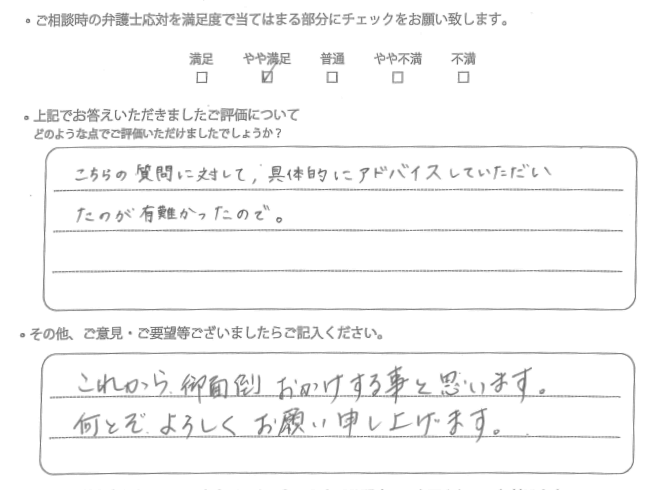 • ご相談時の弁護士応対を満足度で当てはまる部分にチェックをお願い致します。
満足 やや満足 普通 やや不満 不満
□ ☑ □ □ □
• 上記でお答えいただきましたご評価について
どのような点でご評価いただけましたでしょうか?
こちらの質問に対して、具体的にアドバイスしていただい
たのが有難かったので。
• その他、ご意見・ご要望等ございましたらご記入ください。
これから、御面倒おかけする事と思います。
何とぞよろしくお願い申し上げます。